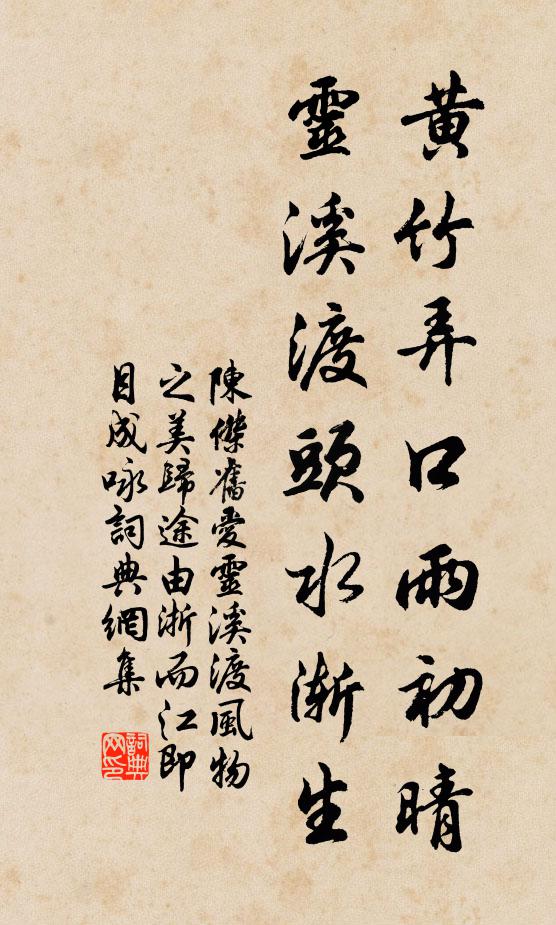 黄竹弄口雨初晴
靈溪渡頭水漸生
陳傑舊愛靈溪渡風物
之美歸途由浙而江即
目成咏詞典網集
詞典網印